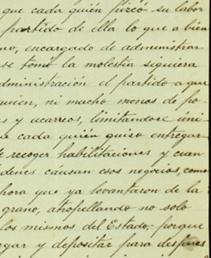 que cada quién ejerció su labor
partido de ella lo que a bien
mo, encargado de administrar
se tomó la molestia siquiera
dministración el partido a que
quien, ni mucho menos de po-
s y acarreos, limitándose úni
e cada quién quiso entregar
e recoger habilitaciones y cuan
denes causan esos negocios, como
hora que ya levantaron de la
grano, atropellando no solo
los mismos del Estado, porque
gar y depositar para después